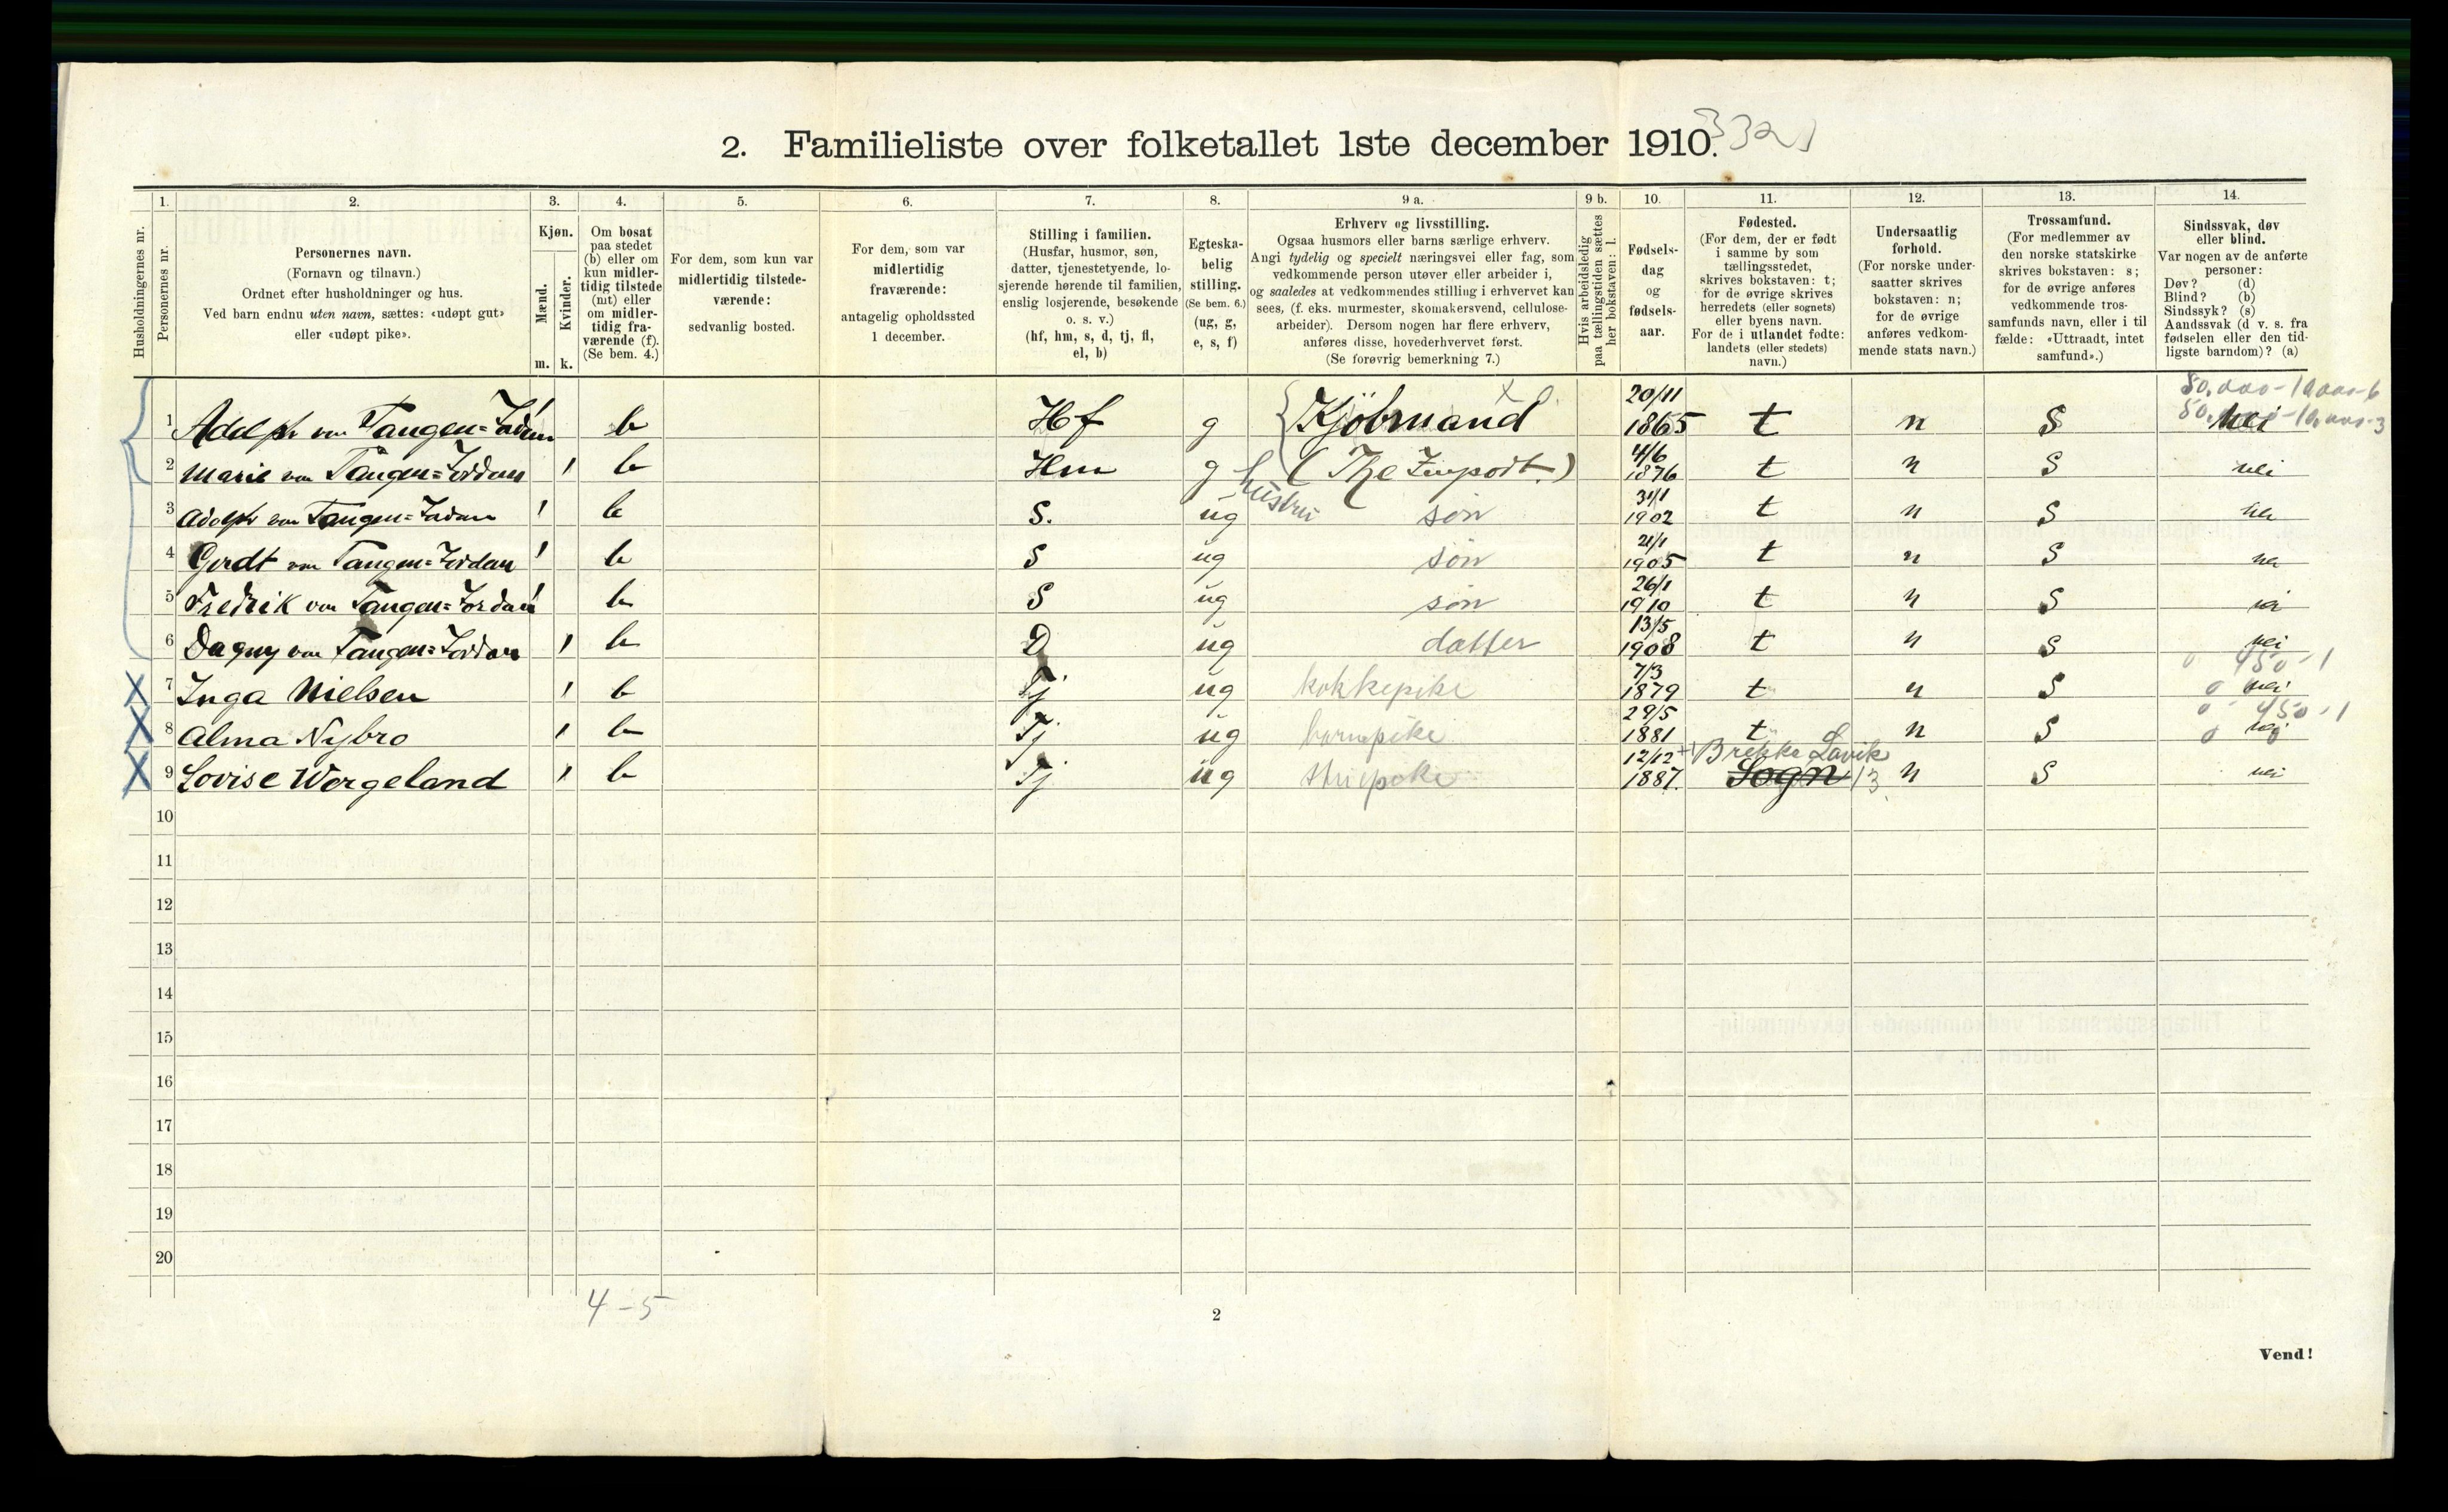 2. Familieliste over folketallet 1ste december 1910.
1. 2. 3. 4. 5. 6. 7. 8. 9 a. 9 b. 10. 11. 12. 13. 14.
Husholdningernes nr.
Personernes nr.
Personernes navn.
(Fornavn og tilnavn.)
Ordnet efter husholdninger og hus.
Ved barn endnu uten navn, sættes: «udøpt gut»
eller «udøpt pike».
Kjøn.
Mænd.
Kvinder.
m. k.
Om bosat
paa stedet
(b) eller om
kun midler-
tidig tilstede
(mt) eller
om midler-
tidig fra-
værende (f).
(Se bem. 4.)
For dem, som kun var
midlertidig tilstede-
værende:
sedvanlig bosted.
For dem, som var
midlertidig
fraværende:
antagelig opholdssted
1 december.
Stilling i familien.
(Husfar, husmor, søn,
datter, tjenestetyende, lo-
sjerende hørende til familien,
enslig losjerende, besøkende
o. s. v.)
(hf, hm, s, d, tj, fl,
el, b)
Egteska-
belig
stilling.
(Se bem. 6.)
(ug, g,
e, s, f)
Erhverv og livsstilling.
Ogsaa husmors eller barns særlige erhverv.
Angi tydelig og specielt næringsvei eller fag, som
vedkommende person utøver eller arbeider i,
og saaledes at vedkommendes stilling i erhvervet kan
sees, (f. eks. murmester, skomakersvend, cellulose-
arbeider). Dersom nogen har flere erhverv,
anføres disse, hovederhvervet først.
(Se forøvrig bemerkning 7.)
Hvis arbeidsledig
paa tællingstiden sættes
her bokstaven: l.
Fødsels-
dag
og
fødsels-
aar.
Fødested.
(For dem, der er født
i samme by som
tællingsstedet,
skrives bokstaven: t;
for de øvrige skrives
herredets (eller sognets)
eller byens navn.
For de i utlandet fødte:
landets (eller stedets)
navn.)
Undersaatlig
forhold.
(For norske under-
saatter skrives
bokstaven: n;
for de øvrige
anføres vedkom-
mende stats navn.)
Trossamfund.
(For medlemmer av
den norske statskirke
skrives bokstaven: s;
for de øvrige anføres
vedkommende tros-
samfunds navn, eller i til
fælde: «Uttraadt, intet
samfund».)
Sindssvak, døv
eller blind.
Var nogen av de anførte
personer:
Døv? (d)
Blind? (b)
Sindssyk? (s)
Aandssvak (d v. s. fra
fødselen eller den tid-
ligste barndom)? (a)
1 Adolph von Tangen=Jordan b Hf g Kjöbmand 20/11 1865 t n S nei
2 Marie von Tangen=Jordan 1 b Hm g hustru (The Import.) 4/6 1876 t n S nei
3 Adolph von Tangen=Jordan 1 b S. ug søn 31/1 1902 t n S
4 Gerdt von Tangen=Jordan 1 b S ug søn 21/1 1905 t n S
5 Fredrik von Tangen=Jordan 1 b S ug søn 26/1 1910 t n S
6 Dagny von Tangen=Jordan 1 b D ug datter 13/5 1908 t n S nei
450-1
X 7 Inga Nielsen 1 b Tj ug kokkepike 7/3 1879 t n S 0 nei
450-1
X 8 Alma Nybro 1 b Tj ug barnepike 29/5 1881 t n S 0 nei
Brekke Lavik
X 9 Lovise Wergeland 1 b Tj ug 12/12 1887. Sogn 13 n S nei
10
11
12
13
14
15
16
17
18
19
20
4-5
2
Vend!